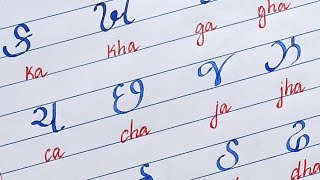 ક ખ ગ ઘ
ka kha ga gha
ચ છ જ ઝ
ca cha ja jha
ડ ઢ
dha